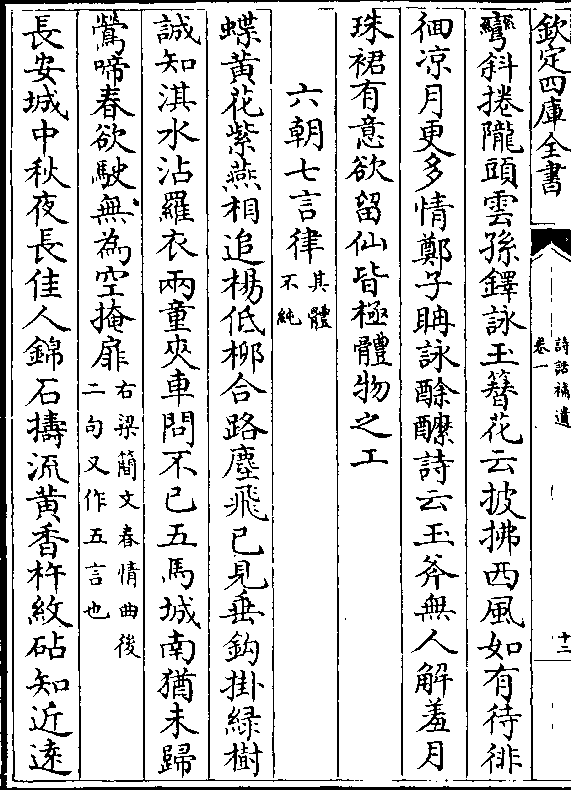 欽定四庫全書
詩話補遺
卷一
十二
彎斜捲隴頭雲孫鐸詠玉簪花云披拂西風如有待徘
徊凉月更多情鄭子聃詠酴醿詩云玉斧無人解羞月
珠裙有意欲留仙皆極體物之工
六朝七言律
其體
不純
蝶黄花紫燕相追楊低柳合路塵飛已見垂鈎掛緑樹
誠知淇水沾羅衣兩童夾車問不已五馬城南猶未歸
鶯啼春欲駛無為空掩扉
右梁簡文春情曲後
二句又作五言也
長安城中秋夜長佳人錦石擣流黄香杵紋砧知近遠